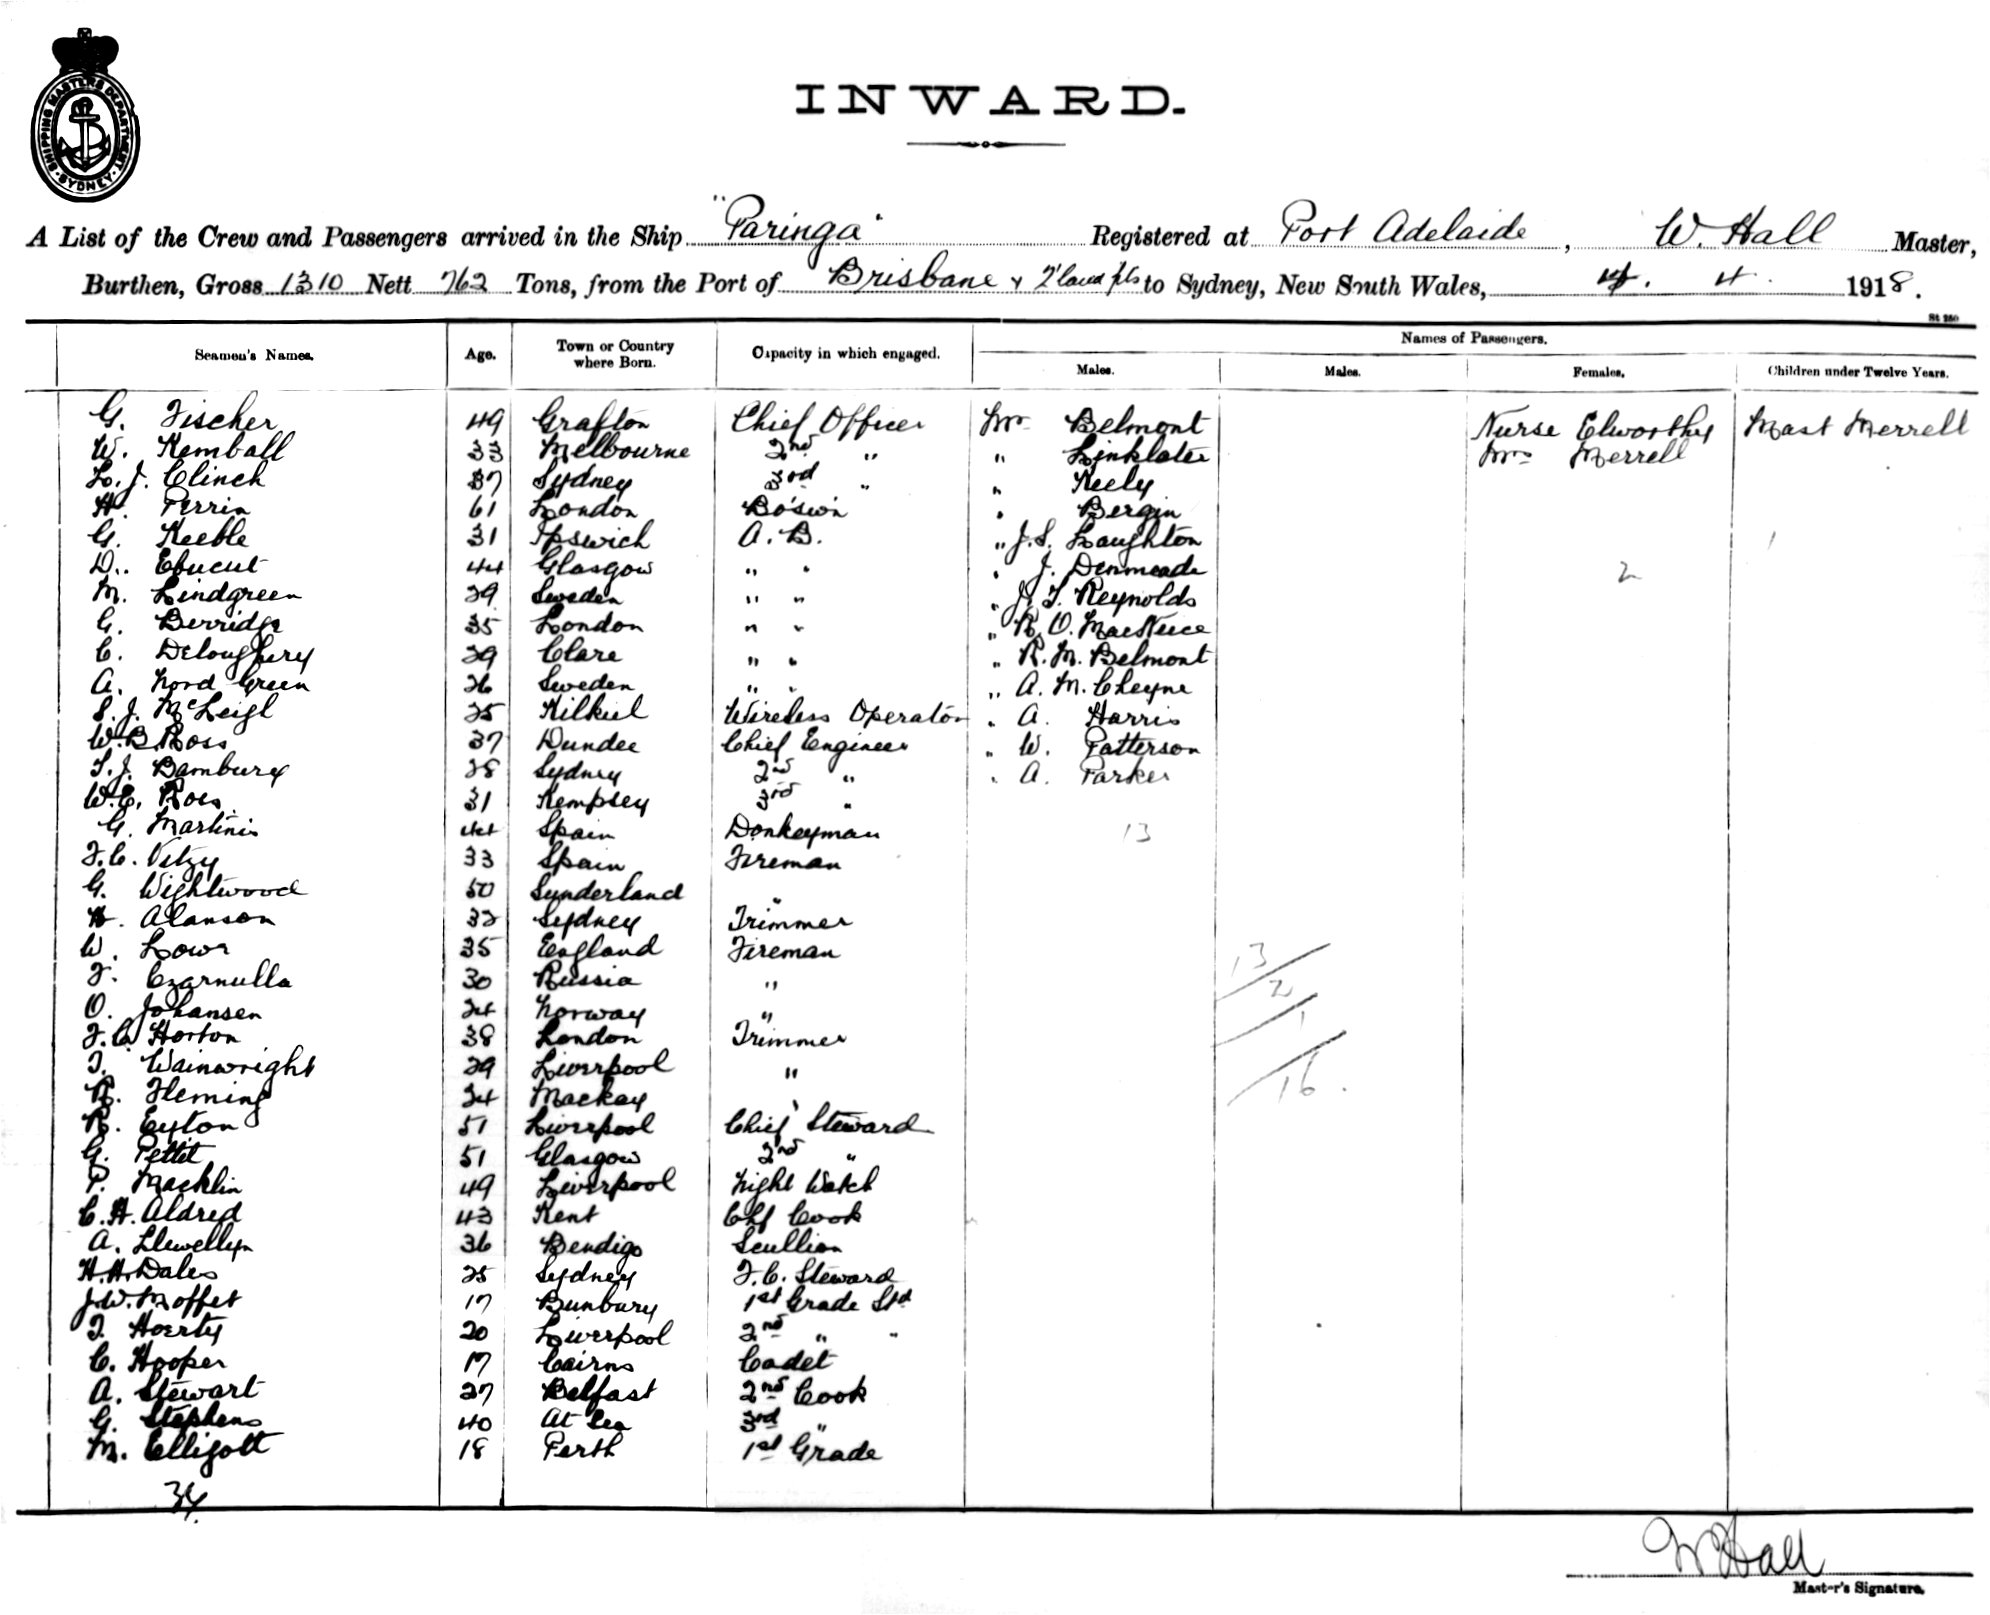 SHIPPING MASTERS DEPARTMENT SYDNEY
INWARD.
A List of the Crew and Passengers arrived in the Ship "Paringa" Registered at Port Adelaide, W. Hall Master,
Burthen, Gross 1310 Nett 762 Tons, from the Port of Brisbane & to Sydney, New South Wales, 4. 4. 1918.
St 250
Seamen's Names. Age. Town or Country where Born. Capacity in which engaged. Names of Passengers.
Males. Males. Females. Children under Twelve Years.
G. Fischer 49 Grafton Chief Officer Mr Belmont Nurse Elworthy Mast Merrell
W. Kemball 33 Melbourne 2nd " " Linklater Mrs Merrell
L. J. Clinch 37 Sydney 3rd " " Keely
H. Perrin 61 London Bo'sin " Bergin
G. Keeble 31 Ipswich A. B. " J. S. Laughton 1
D. 44 Glasgow " " " J. Denmeade 2
M. Lindgreen 29 Sweden " " " J. T. Reynolds
G. Berridge 35 London " " " R. O.
C. Deloughery 29 Clare " " " R. M. Belmont
A. Nord Green 26 Sweden " " " A. M. Cheyne
S. J. McLeigh 25 Kilkiel Wireless Operator " A. Harris
W. B. Ross 37 Dundee Chief Engineer " W. Patterson
T. J. Bambury 28 Sydney 2nd " " A. Parker
W. C. Ross 31 Kempsey 3rd "
G. Martinis 44 Spain Donkeyman 13
F. C. 33 Spain Fireman
G. Wightwood 50 Sunderland "
H. Alanson 32 Sydney Trimmer
W. Lowe 35 England Fireman 13
F. Czarnulla 30 Russia " 2
O. Johansen 24 Norway " 1
F. C. Horton 38 London Trimmer
T. Wainwright 29 Liverpool " 16.
R. Fleming 24 Mackay "
R. Eyton 51 Liverpool Chief Steward
G. Pettit 51 Glasgow 2nd "
P. Macklin 49 Liverpool Night Watch
C. H. Aldred 43 Kent Chf Cook
A. Llewellyn 36 Bendigo Scullion
H. H. Dales 25 Sydney F. C. Steward
J. W. Moffet 17 Bunbury 1st Grade Std
T. Hoerty 20 Liverpool 2nd " "
C. Hooper 17 Cairns Cadet
A. Stewart 27 Belfast 2nd Cook
G. Stephens 40 At Sea 3rd "
M. Elligott 18 Perth 1st Grade
W Hall
Master's Signature.